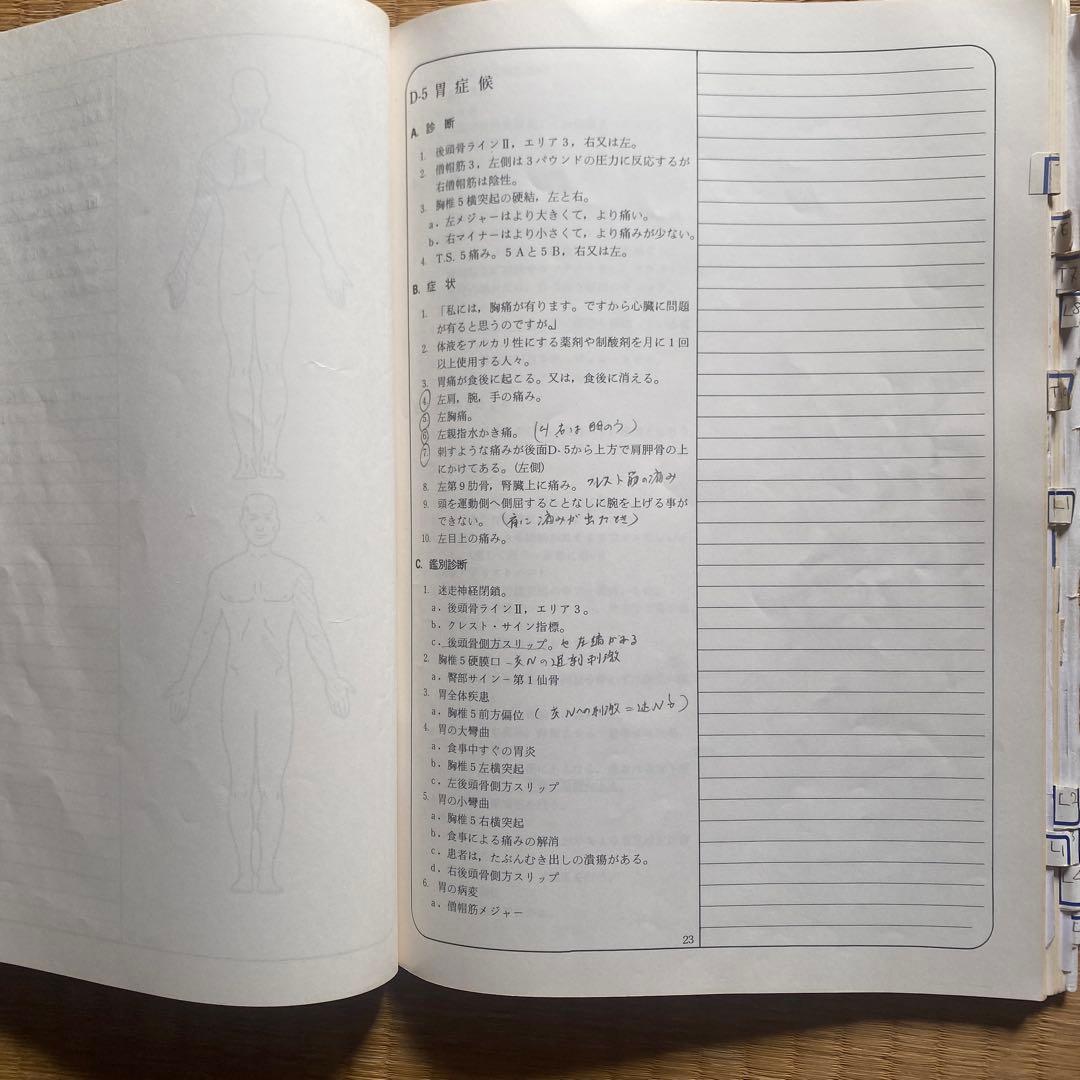 D-5 胃症候
A. 診断
1. 後頭骨ラインⅡ，エリア3，右又は左。
2. 僧帽筋3，左側は3パウンドの圧力に反応するが
右僧帽筋は陰性。
3. 胸椎5横突起の硬結，左と右。
a. 左メジャーはより大きくて，より痛い。
b. 右マイナーはより小さくて，より痛みが少ない。
4. T.S. 5痛み。5Aと5B，右又は左。
B. 症状
1. 「私には，胸痛が有ります。ですから心臓に問題
が有ると思うのですが。」
2. 体液をアルカリ性にする薬剤や制酸剤を月に1回
以上使用する人々。
3. 胃痛が食後に起こる。又は，食後に消える。
4. 左肩，腕，手の痛み。
5. 左胸痛。
6. 左親指水かき痛。 (4 右は 胆のう)
7. 刺すような痛みが後面D-5から上方で肩胛骨の上
にかけてある。(左側)
8. 左第9肋骨，腎臓上に痛み。 クレスト筋の痛み
9. 頭を運動側へ側屈することなしに腕を上げる事が
できない。 (肩に痛みが出たとき)
10. 左目上の痛み。
C. 鑑別診断
1. 迷走神経閉鎖。
a. 後頭骨ラインⅡ，エリア3。
b. クレスト・サイン指標。
c. 後頭骨側方スリップ。
2. 胸椎5硬膜口 - 交Nの過剰刺激
a. 臀部サイン－第1仙骨
3. 胃全体疾患
a. 胸椎5前方偏位 (交Nへの刺激=迷N
4. 胃の大彎曲
a. 食事中すぐの胃炎
b. 胸椎5左横突起
c. 左後頭骨側方スリップ
5. 胃の小彎曲
a. 胸椎5右横突起
b. 食事による痛みの解消
c. 患者は，たぶんむき出しの潰瘍がある。
d. 右後頭骨側方スリップ
6. 胃の病変
a. 僧帽筋メジャー
23
L1
L2
L1